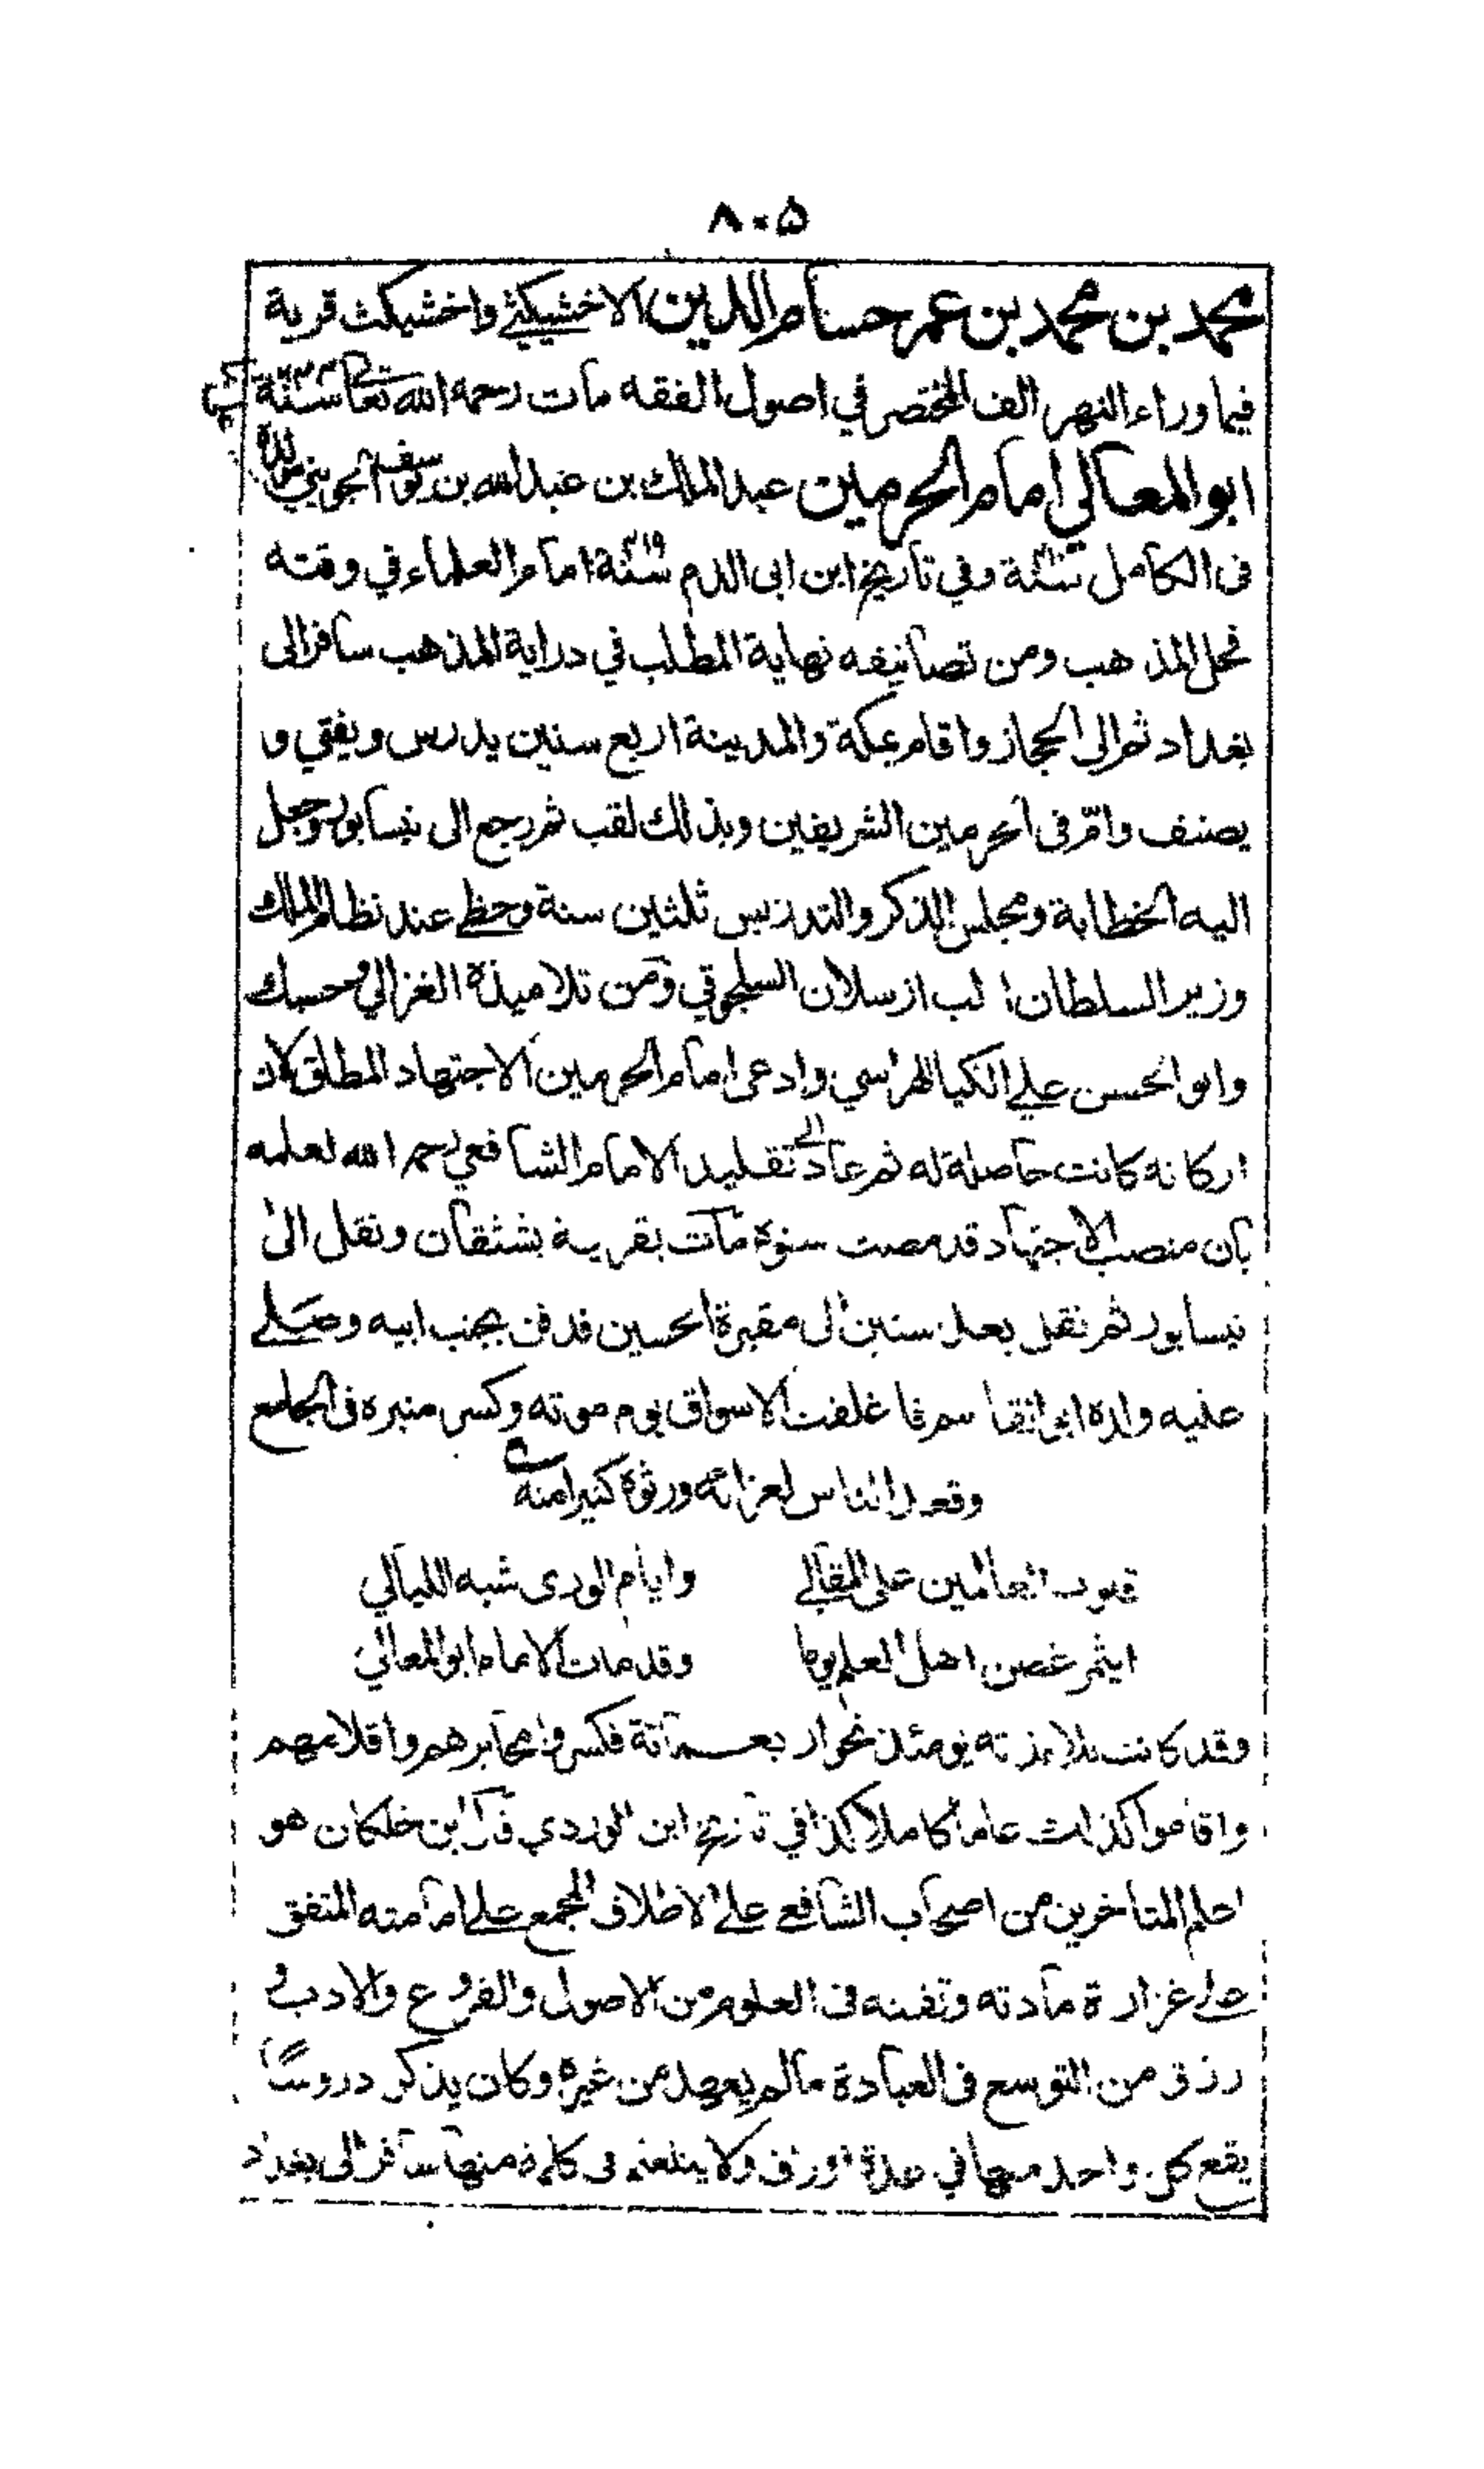 ٨٠٥
محمد بن محمد بن عمر حسام الدين الاخشيكثي واخشيكث قرية
فيما وراء النهر الف المختصر في اصول الفقه مات رحمه الله تعالى سنة
ابو المعالي امام الحرمين عبد الملك بن عبد الله بن يوسف الجويني مولده
في الكامل سنة وفي تاريخ ابن ابي الدم سنة ٤١٩ امام العلماء في وقته
فحل المذهب ومن تصانيفه نهاية المطلب في دراية المذهب سافر الى
بغداد ثم الى الحجاز واقام بمكة والمدينة اربع سنين يدرس ويفتي و
يصنف وامّ في الحرمين الشريفين وبذلك لقب ثم رجع الى نيسابور وجعل
اليه الخطابة ومجلس الذكر والتدريس ثلثين سنة وحظي عند نظام الملك
وزير السلطان الب ارسلان السلجوقي ومن تلاميذه الغزالي وحسبك
وابو الحسن علي الكيا الهراسي وادعى امام الحرمين الاجتهاد المطلق لان
اركانه كانت حاصلة له ثم عاد الى تقليد الامام الشافعي رحمه الله لعلمه
بان منصب الاجتهاد قد مضت سنوه مات بقرية بشتقان ونقل الى
نيسابور ثم نقل بعد سنين الى مقبرة الحسين فدفن بجنب ابيه وصلى
عليه ولده ابو القاسم فاغلقت الاسواق يوم موته وكسر منبره في الجامع
وقعد الناس لعزائه ورثوه كثيرا منه
قلوب العالمين على المقالي وايام الورى شبه الليالي
ايثمر غصن اهل العلم يوما وقد مات الامام ابو المعالي
وقد كانت تلامذته يومئذ نحو اربعمائة فكسروا محابرهم واقلامهم
واقاموا كذلك عاما كاملا كذا في تاريخ ابن الوردي قال ابن خلكان هو
اعلم المتأخرين من اصحاب الشافعي على الاطلاق المجمع على امامته المتفق
على غزارة مادته وتفننه في العلوم من الاصول والفروع والادب و
رزق من التوسع في العبادة مالم يعهد من غيره وكان يذكر دروسا
يقع كل واحد منها في عدة اوراق ولا يتلعثم في كلمة منها سافر الى بغداد